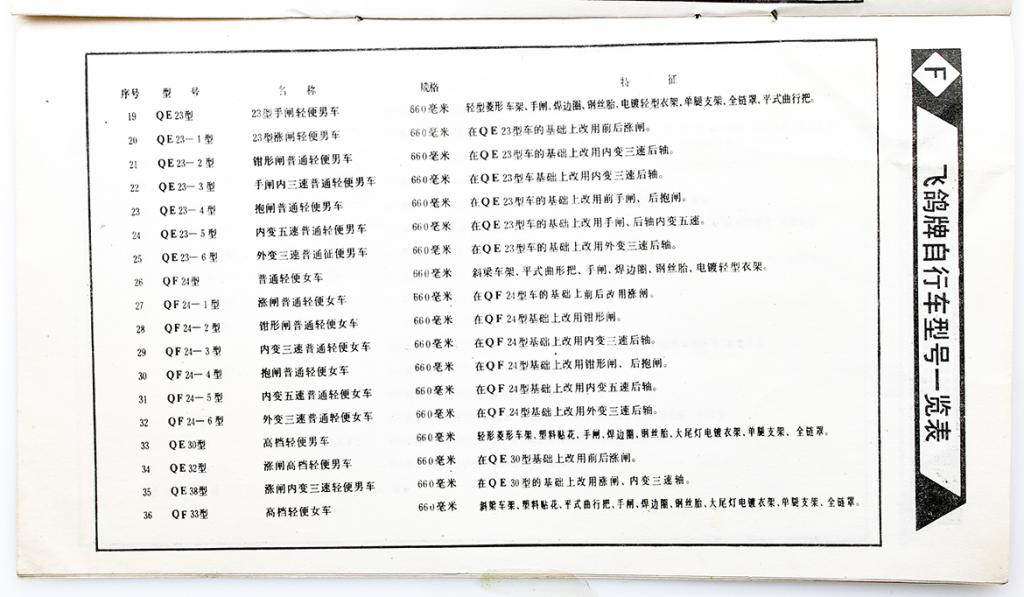 序号 型号 名称 规格 特征
19 QE23型 23型手闸轻便男车 660毫米 轻型菱形车架、手闸、焊边圈、钢丝胎、电镀轻型衣架、单腿支架、全链罩、平式曲行把。
20 QE23—1型 23型涨闸轻便男车 660毫米 在QE23型车的基础上改用前后涨闸。
21 QE23—2型 钳形闸普通轻便男车 660毫米 在QE23型车的基础上改用内变三速后轴。
22 QE23—3型 手闸内三速普通轻便男车 660毫米 在QE23型车基础上改用内变三速后轴。
23 QE23—4型 抱闸普通轻便男车 660毫米 在QE23型车的基础上改用前手闸、后抱闸。
24 QE23—5型 内变五速普通轻便男车 660毫米 在QE23型车的基础上改用手闸、后轴内变五速。
25 QE23—6型 外变三速普通征便男车 660毫米 在QE23型车的基础上改用外变三速后轴。
26 QF24型 普通轻便女车 660毫米 斜梁车架、平式曲形把、手闸、焊边圈、钢丝胎、电镀轻型衣架。
27 QF24—1型 涨闸普通轻便女车 660毫米 在QF24型车的基础上前后改用涨闸。
28 QF24—2型 钳形闸普通轻便女车 660毫米 在QF24型基础上改用钳形闸。
29 QF24—3型 内变三速普通轻便女车 660毫米 在QF24型基础上改用内变三速后轴。
30 QF24—4型 抱闸普通轻便女车 660毫米 在QF24型基础上改用钳形闸、后抱闸。
31 QF24—5型 内变五速普通轻便女车 660毫米 在QF24型基础上改用内变五速后轴。
32 QF24—6型 外变三速普通轻便女车 660毫米 在QF24型基础上改用外变三速后轴。
33 QE30型 高档轻便男车 660毫米 轻形菱形车架、塑料贴花、手闸、焊边圈、钢丝胎、大尾灯电镀衣架、单腿支架、全链罩。
34 QE32型 涨闸高档轻便男车 660毫米 在QE30型基础上改用前后涨闸。
35 QE38型 涨闸内变三速轻便男车 660毫米 在QE30型的基础上改用涨闸、内变三速轴。
36 QF33型 高档轻便女车 660毫米 斜梁车架、塑料贴花、平式曲行把、手闸、焊边圈、钢丝胎、大尾灯电镀衣架、单腿支架、全链罩。
F
飞鸽牌自行车型号一览表